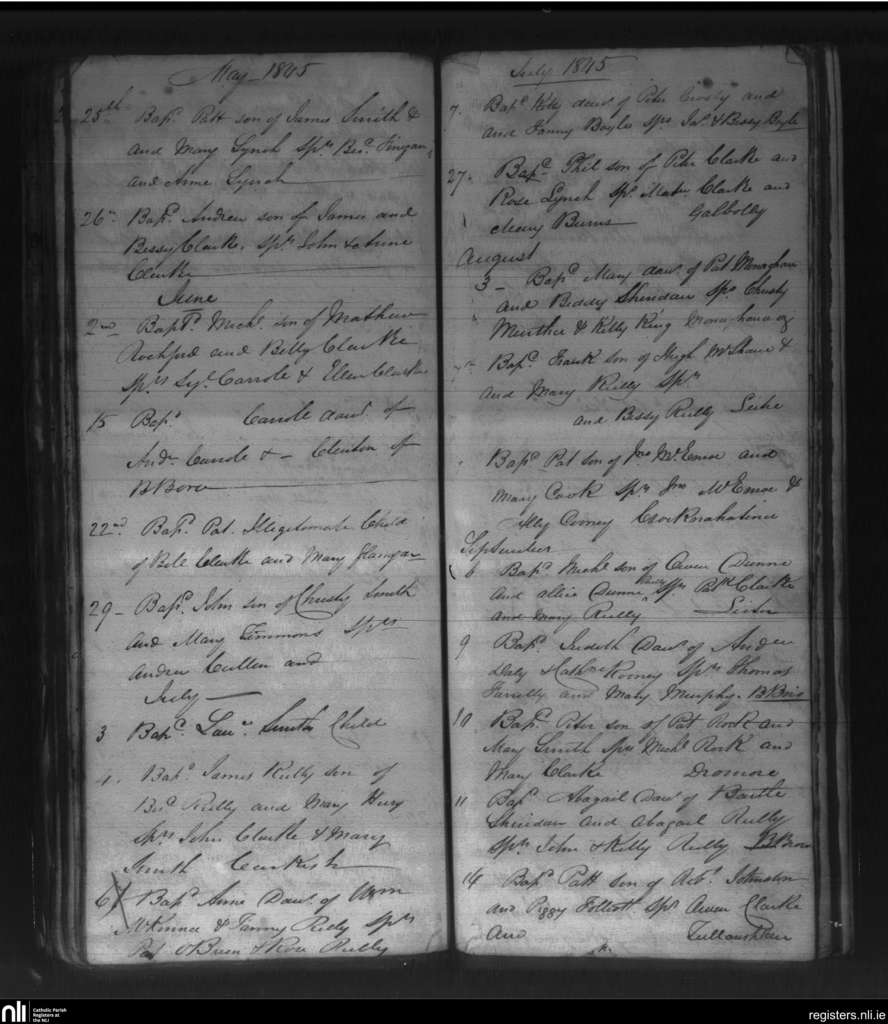 May 1845
25th Bapd. Patt son of James Smith &
and Mary Lynch Sprs. Bird. Finegan
and Anne Lynch
26th Bapd. Andrew son of James and
Bessy Clarke. Sprs. John & Anne
Clarke
June
2nd Bapd. Michl. son of Mathew
Rochford and Betty Clarke
Sprs. Carrole & Ellen Clarke
15 Bapd. Carrole daur. of
Andr. Carrole & - Clinton of
B Bore
22nd Bapd. Pat. Illegitimate Child
of Clarke and Mary Flanigan
29 - Bapd. John son of Christy Smith
and Mary Timmons Sprs
Andrew Cullen and
July
3 Bapd. Laur. Smith Child
4. Bapd. James Reilly son of
Reilly and Mary
Sprs. John Clarke & Mary
Smith
6 Bapd. Anne Daur. of Wm
McKinna & Fanny Reily Sprs
Pat O'Brien & Rose Reilly
July 1845
7. Bapd. Kitty daur. of Peter and
and Fanny Boyle Sprs. Jas. & Bessy Boyle
27. Bapd. Phil son of Peter Clarke and
Rose Lynch Sprs. Mathw Clarke and
Mary Burns Galbolly
August
3 - Bapd. Mary daur. of Pat Monaghan
and Biddy Sheridan Sprs. Christy
Murtha & Kitty King
Bapd. Frank son of Hugh &
and Mary Reilly Sprs
and Bessy Reilly
Bapd. Pat son of Jno McEnroe and
Mary Cook Sprs Jno McEnroe &
Cooney
September
6 Bapd. Michl son of Owen Dunne
and Alice Dunne Sprs Patk Clarke
and Mary Reilly
9 Bapd. Judith Daur. of Andrew
Daly & Cathne Rooney Sprs Thomas
Farrelly and Mary Murphy. B Bore
10 Bapd. Peter son of Pat Rork and
Mary Smith Sprs Michl Rork and
Mary Clarke Dromore
11 Bapd Abagail Daur of Bartle
Sheridan and Abagail Reilly
Sprs John & Kitty Reilly B Bore
14 Bapd Patt son of Robt. Johnston
and Peggy Elliott. Sprs Owen Clarke
and
nli
Catholic Parish
Registers at
the NLI
registers.nli.ie